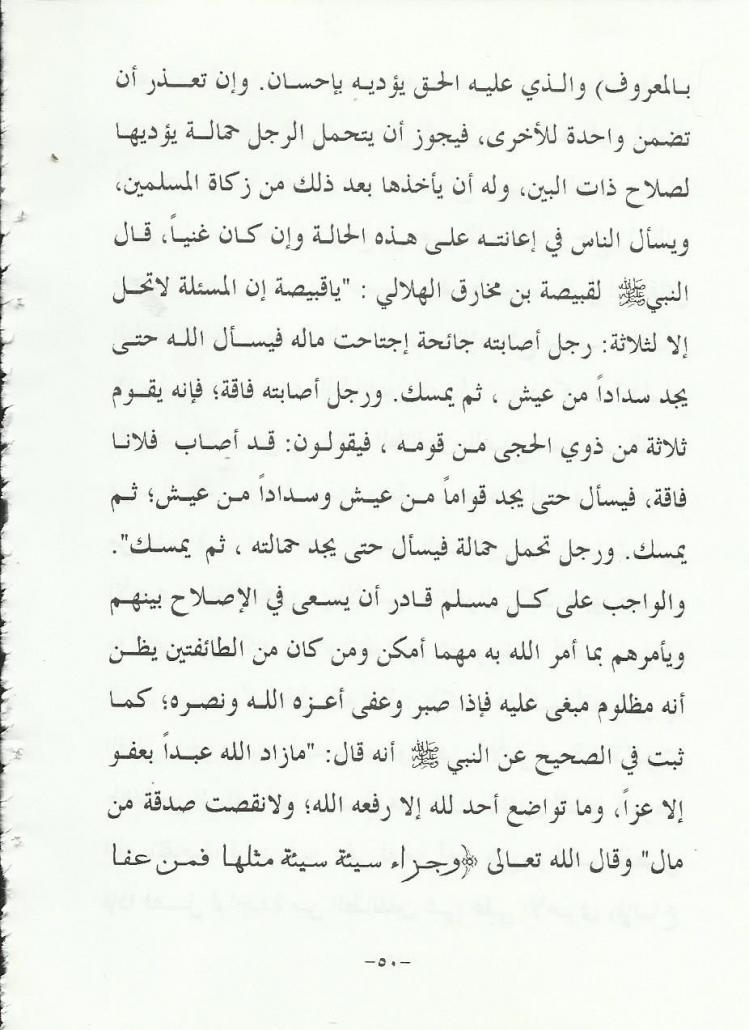 بالمعروف) والذي عليه الحق يؤديه بإحسان. وإن تعذر أن
تضمن واحدة للأخرى، فيجوز أن يتحمل الرجل حمالة يؤديها
لصلاح ذات البين، وله أن يأخذها بعد ذلك من زكاة المسلمين،
ويسأل الناس في إعانته على هذه الحالة وإن كان غنياً، قال
النبي ﷺ لقبيصة بن مخارق الهلالي : "ياقبيصة إن المسئلة لاتحل
إلا لثلاثة: رجل أصابته جائحة إجتاحت ماله فيسأل الله حتى
يجد سداداً من عيش ، ثم يمسك. ورجل أصابته فاقة؛ فإنه يقوم
ثلاثة من ذوي الحجى من قومه ، فيقولون: قد أصاب فلانا
فاقة، فيسأل حتى يجد قواماً من عيش وسداداً من عيش؛ ثم
يمسك. ورجل تحمل حمالة فيسأل حتى يجد حمالته ، ثم يمسك".
والواجب على كل مسلم قادر أن يسعى في الإصلاح بينهم
ويأمرهم بما أمر الله به مهما أمكن ومن كان من الطائفتين يظن
أنه مظلوم مبغى عليه فإذا صبر وعفى أعزه الله ونصره؛ كما
ثبت في الصحيح عن النبي ﷺ أنه قال: "مازاد الله عبداً بعفو
إلا عزاً، وما تواضع أحد لله إلا رفعه الله؛ ولانقصت صدقة من
مال" وقال الله تعالى ﴿وجزاء سيئة سيئة مثلها فمن عفا
-٥٠-